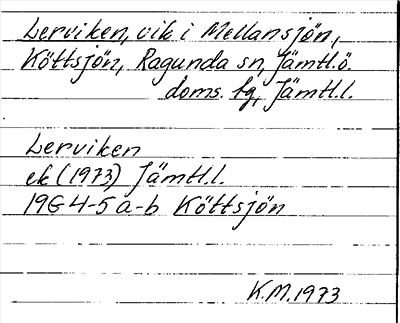 Lerviken, vik i Mellansjön,
Köttsjön, Ragunda sn, Jämtl.ö.
doms. fg, Jämtl.l.
Lerviken
ek (1973) Jämtl.l.
19G 4-5 a-b Köttsjön
K.M. 1973